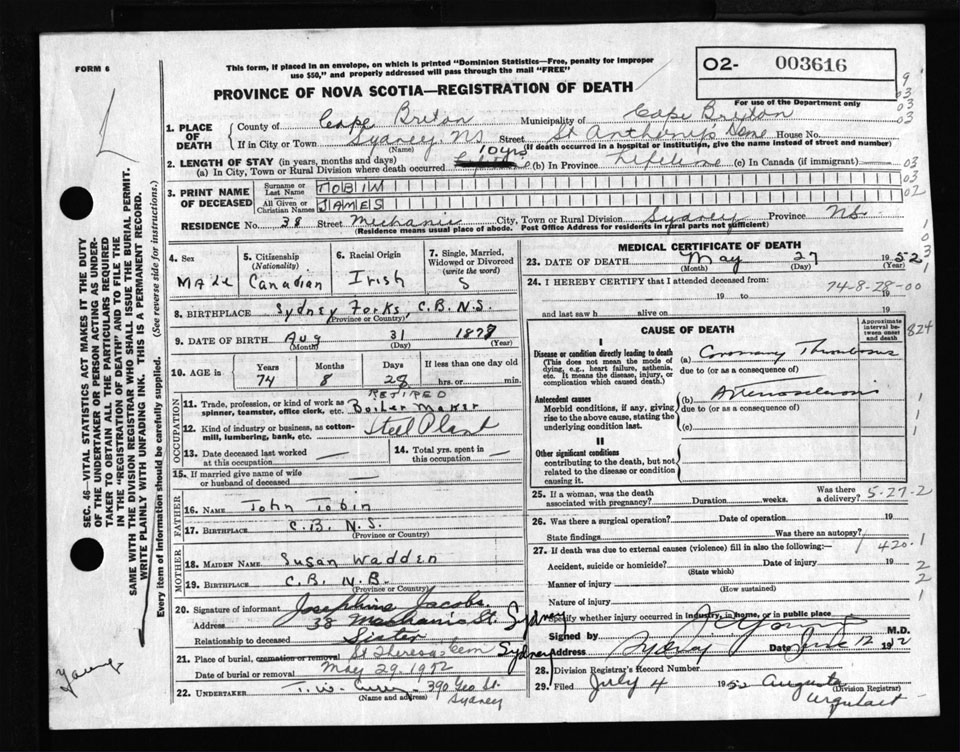 FORM 6
This form, if placed in an envelope, on which is printed "Dominion Statistics—Free, penalty for improper
use $50," and properly addressed will pass through the mail "FREE"
PROVINCE OF NOVA SCOTIA—REGISTRATION OF DEATH
O2- 003616
For use of the Department only
9
03
03
03
1. PLACE OF DEATH
County of Cape Breton Municipality of Cape Breton
If in City or Town Sydney, NS Street St Anthony's Home House No.
(Name) (If death occurred in a hospital or institution, give the name instead of street and number)
2. LENGTH OF STAY (in years, months and days) 10 yrs
(a) In City, Town or Rural Division where death occurred (b) In Province Lifetime (c) In Canada (if immigrant)
03
03
02
3. PRINT NAME OF DECEASED
Surname or Last Name TOBIN
All Given or Christian Names JAMES
RESIDENCE No. 38 Street Mechanic City, Town or Rural Division Sydney Province NS.
(Residence means usual place of abode. Post Office Address for residents in rural parts not sufficient)
4. Sex
MALE
5. Citizenship (Nationality)
Canadian
6. Racial Origin
Irish
7. Single, Married, Widowed or Divorced (write the word)
S
8. BIRTHPLACE Sydney Forks, C.B.N.S.
(Province or Country)
9. DATE OF BIRTH Aug 31 1877
(Month) (Day) (Year)
10. AGE in Years Months Days If less than one day old
74 8 28 hrs. or min.
OCCUPATION
RETIRED
11. Trade, profession, or kind of work as spinner, teamster, office clerk, etc. Boiler Maker
12. Kind of industry or business, as cotton-mill, lumbering, bank, etc. Steel Plant
13. Date deceased last worked at this occupation —
14. Total yrs. spent in this occupation —
15. If married give name of wife or husband of deceased
FATHER
16. NAME John Tobin
17. BIRTHPLACE C.B. N.S.
(Province or Country)
MOTHER
18. MAIDEN NAME Susan Wadden
19. BIRTHPLACE C.B. N.B.
(Province or Country)
20. Signature of informant Josephine Jacobs
Address 38 Mechanic St. Sydney
Relationship to deceased Sister
21. Place of burial, cremation or removal St Theresa Cem Sydney
Date of burial or removal May 29, 1952
22. UNDERTAKER T. W. Curry 390 Geo St.
(Name and address) Sydney
MEDICAL CERTIFICATE OF DEATH
23. DATE OF DEATH May 27 1952
(Month) (Day) (Year)
24. I HEREBY CERTIFY that I attended deceased from:
74-8-28-00
19 to 19
and last saw h alive on 19
CAUSE OF DEATH
Approximate interval between onset and death
824
I
Disease or condition directly leading to death
(This does not mean the mode of dying, e.g., heart failure, asthenia, etc. It means the disease, injury, or complication which caused death.)
(a) Coronary Thrombosis
due to (or as a consequence of)
Antecedent causes
Morbid conditions, if any, giving rise to the above cause, stating the underlying condition last.
(b) Arteriosclerosis
due to (or as a consequence of)
(c)
II
Other significant conditions
contributing to the death, but not related to the disease or condition causing it.
25. If a woman, was the death associated with pregnancy? Duration weeks. Was there a delivery?
5-27-2
26. Was there a surgical operation? Date of operation 19
State findings Was there an autopsy?
27. If death was due to external causes (violence) fill in also the following:— 420.1
Accident, suicide or homicide? Date of injury 19
(State which)
Manner of injury
(How sustained)
Nature of injury
Specify whether injury occurred in industry, in home, or in public place
Signed by M.D.
Address Sydney Date June 12 1952
28. Division Registrar's Record Number
29. Filed July 4 1952 Augusta Urquhart
(Division Registrar)
SEC. 46—VITAL STATISTICS ACT MAKES IT THE DUTY
OF THE UNDERTAKER OR PERSON ACTING AS UNDER-
TAKER TO OBTAIN ALL THE PARTICULARS REQUIRED
IN THE "REGISTRATION OF DEATH" AND TO FILE THE
SAME WITH THE DIVISION REGISTRAR WHO SHALL ISSUE THE BURIAL PERMIT.
WRITE PLAINLY WITH UNFADING INK. THIS IS A PERMANENT RECORD.
Every item of information should be carefully supplied. (See reverse side for instructions.)
Young